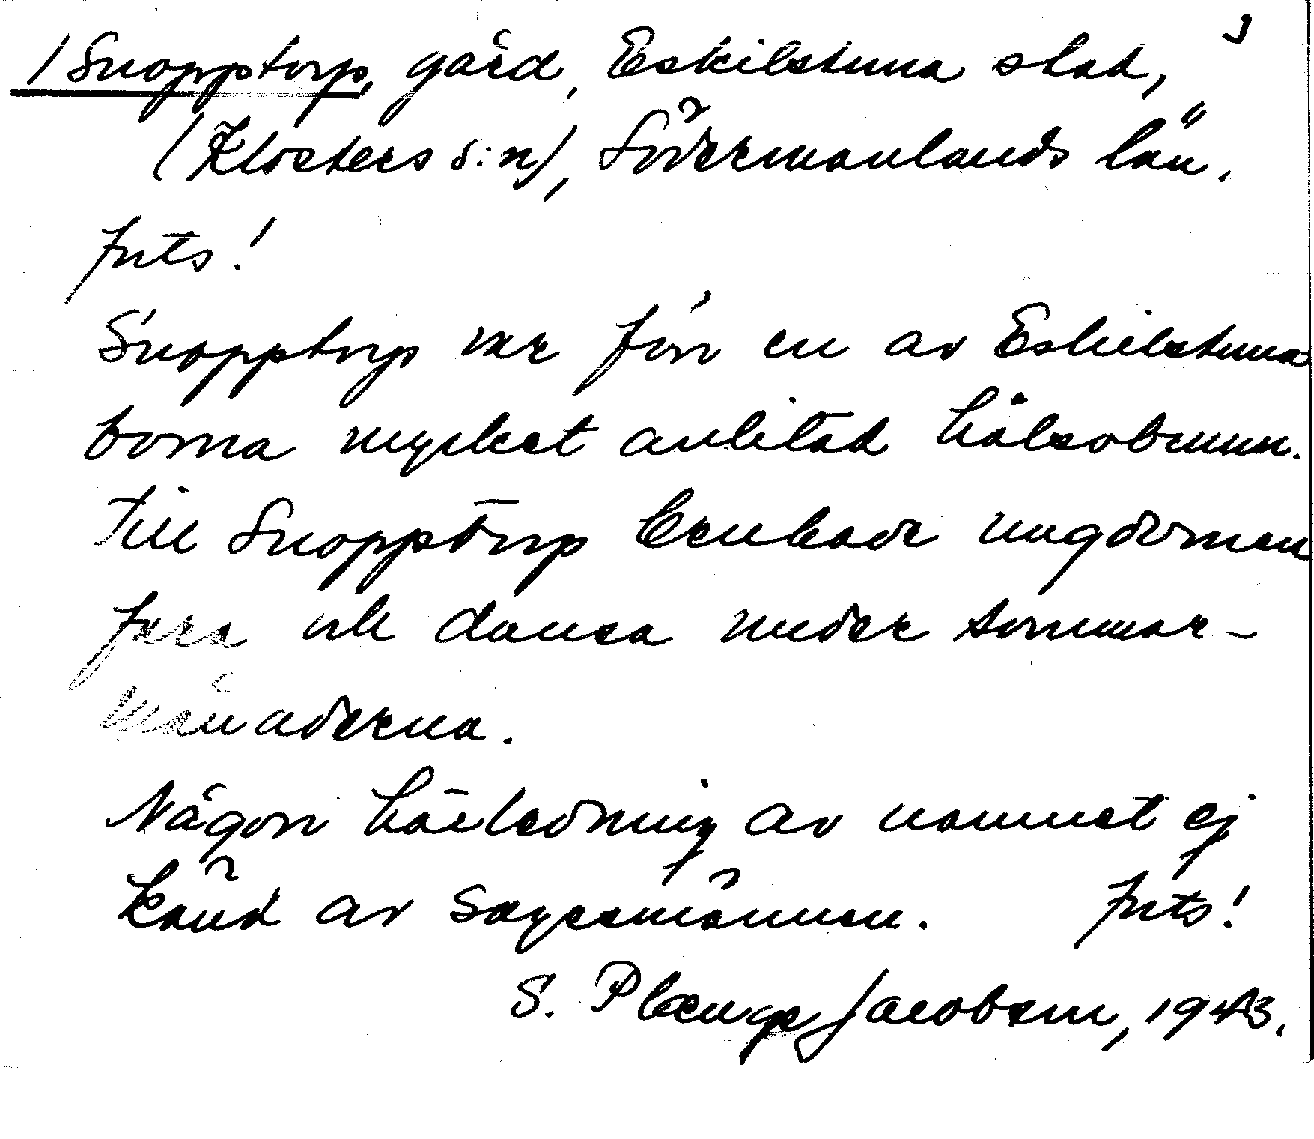 3
/ Snopptorp, gård, Eskilstuna stad,
(Klosters s:n), Södermanlands län.
forts!
Snopptorp var förr en av Eskilstuna
borna mycket anlitad hälsobrunn.
Till Snopptorp brukade ungdomen
fara och dansa under sommar-
månaderna.
Någon härledning av namnet ej
känd av sagesmännen. forts!
S. Plænge Jacobson, 1943.